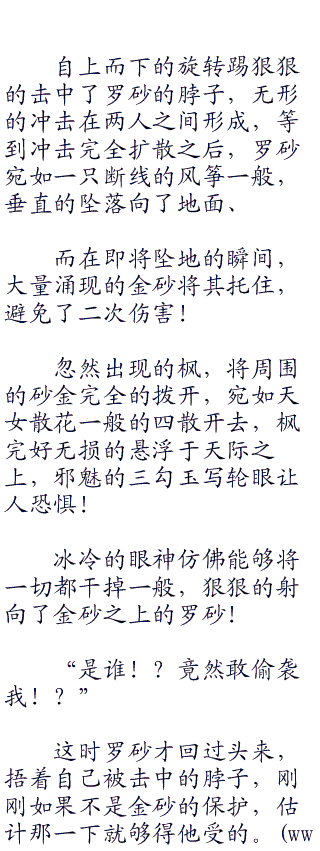 自上而下的旋转踢狠狠
的击中了罗砂的脖子，无形
的冲击在两人之间形成，等
到冲击完全扩散之后，罗砂
宛如一只断线的风筝一般，
垂直的坠落向了地面、
而在即将坠地的瞬间，
大量涌现的金砂将其托住，
避免了二次伤害！
忽然出现的枫，将周围
的砂金完全的拨开，宛如天
女散花一般的四散开去，枫
完好无损的悬浮于天际之
上，邪魅的三勾玉写轮眼让
人恐惧！
冰冷的眼神仿佛能够将
一切都干掉一般，狠狠的射
向了金砂之上的罗砂！
“是谁！？竟然敢偷袭
我！？”
这时罗砂才回过头来，
捂着自己被击中的脖子，刚
刚如果不是金砂的保护，估
计那一下就够得他受的。(ww